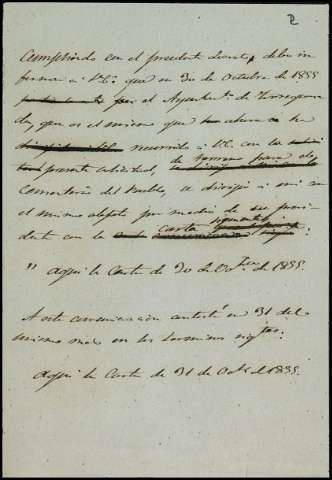 2
Cumpliendo con el precedente decreto, debo in
formar a V.E. que en 30 de Octubre de 1855
el Ayunt.o de Torrequema
da, que es el mismo que ahora ha
recurrido a V.E. con la
presente solicitud, de terreno para el
Cementerio del Pueblo, se dirigió a mi con
el mismo objeto por medio de su presi
dente con la carta siguiente
" Aquí la Carta de 30 de Oct.bre de 1855.
A esta comunicacion contesté en 31 del
mismo mes en los terminos sig.tes:
Aquí la Carta de 31 de Oct.e de 1855.